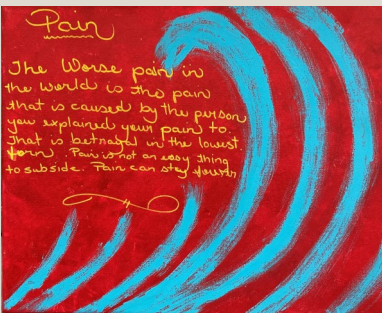 Pain
The Worse pain in
the world is the pain
that is caused by the person
you explained your pain to.
That is betrayal in the lowest
form. Pain is not an easy thing
to subside. Pain can stay